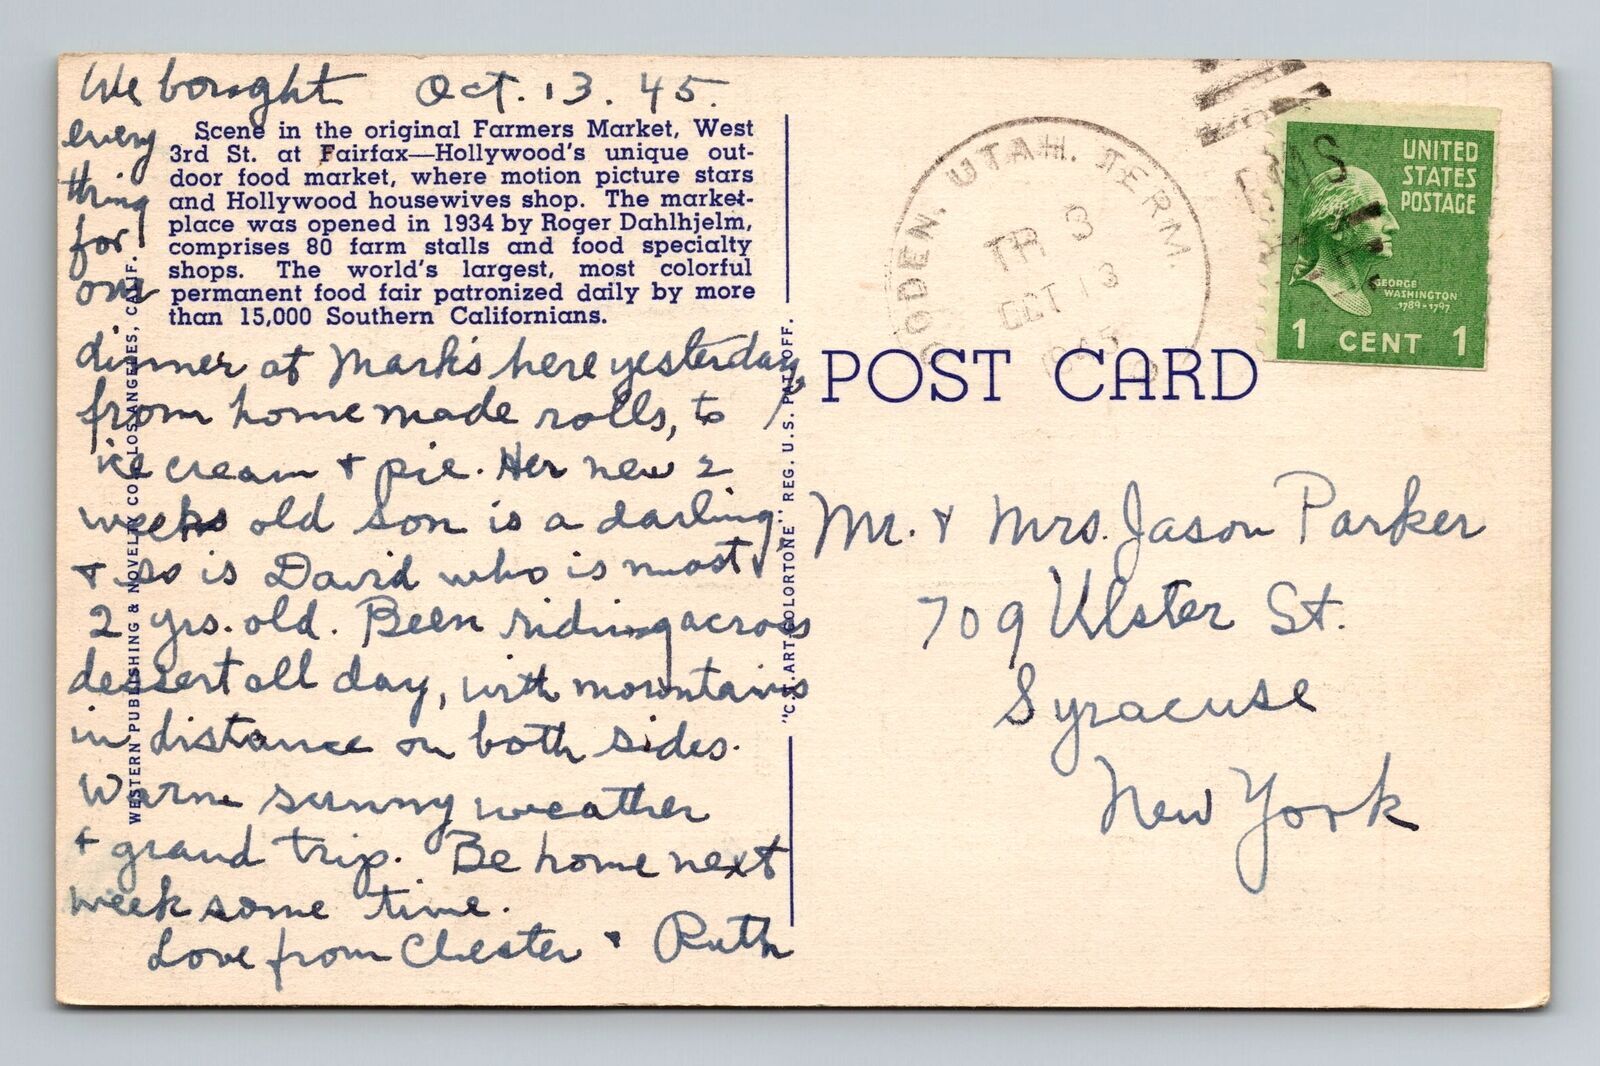 We bought Oct. 13. 45.
every
thing
for
our
Scene in the original Farmers Market, West
3rd St. at Fairfax—Hollywood's unique out-
door food market, where motion picture stars
and Hollywood housewives shop. The market-
place was opened in 1934 by Roger Dahlhjelm,
comprises 80 farm stalls and food specialty
shops. The world's largest, most colorful
permanent food fair patronized daily by more
than 15,000 Southern Californians.
dinner at Mark's here yesterday,
from home made rolls, to
ice cream + pie. Her new 2
weeks old son is a darling,
+ so is David who is most
2 yrs. old. Been riding across
dessert all day, with mountains
in distance on both sides.
Warm sunny weather
+ grand trip. Be home next
week some time.
Love from Chester + Ruth
WESTERN PUBLISHING & NOVELTY CO., LOS ANGELES, CALIF.
"C.T. ART-COLORTONE" REG. U.S. PAT. OFF.
POST CARD
OGDEN, UTAH. TERM.
TR 3
OCT 13
1945
RMS
UNITED
STATES
POSTAGE
GEORGE
WASHINGTON
1789-1797
1 CENT 1
Mr. + Mrs. Jason Parker
709 Ulster St.
Syracuse
New York